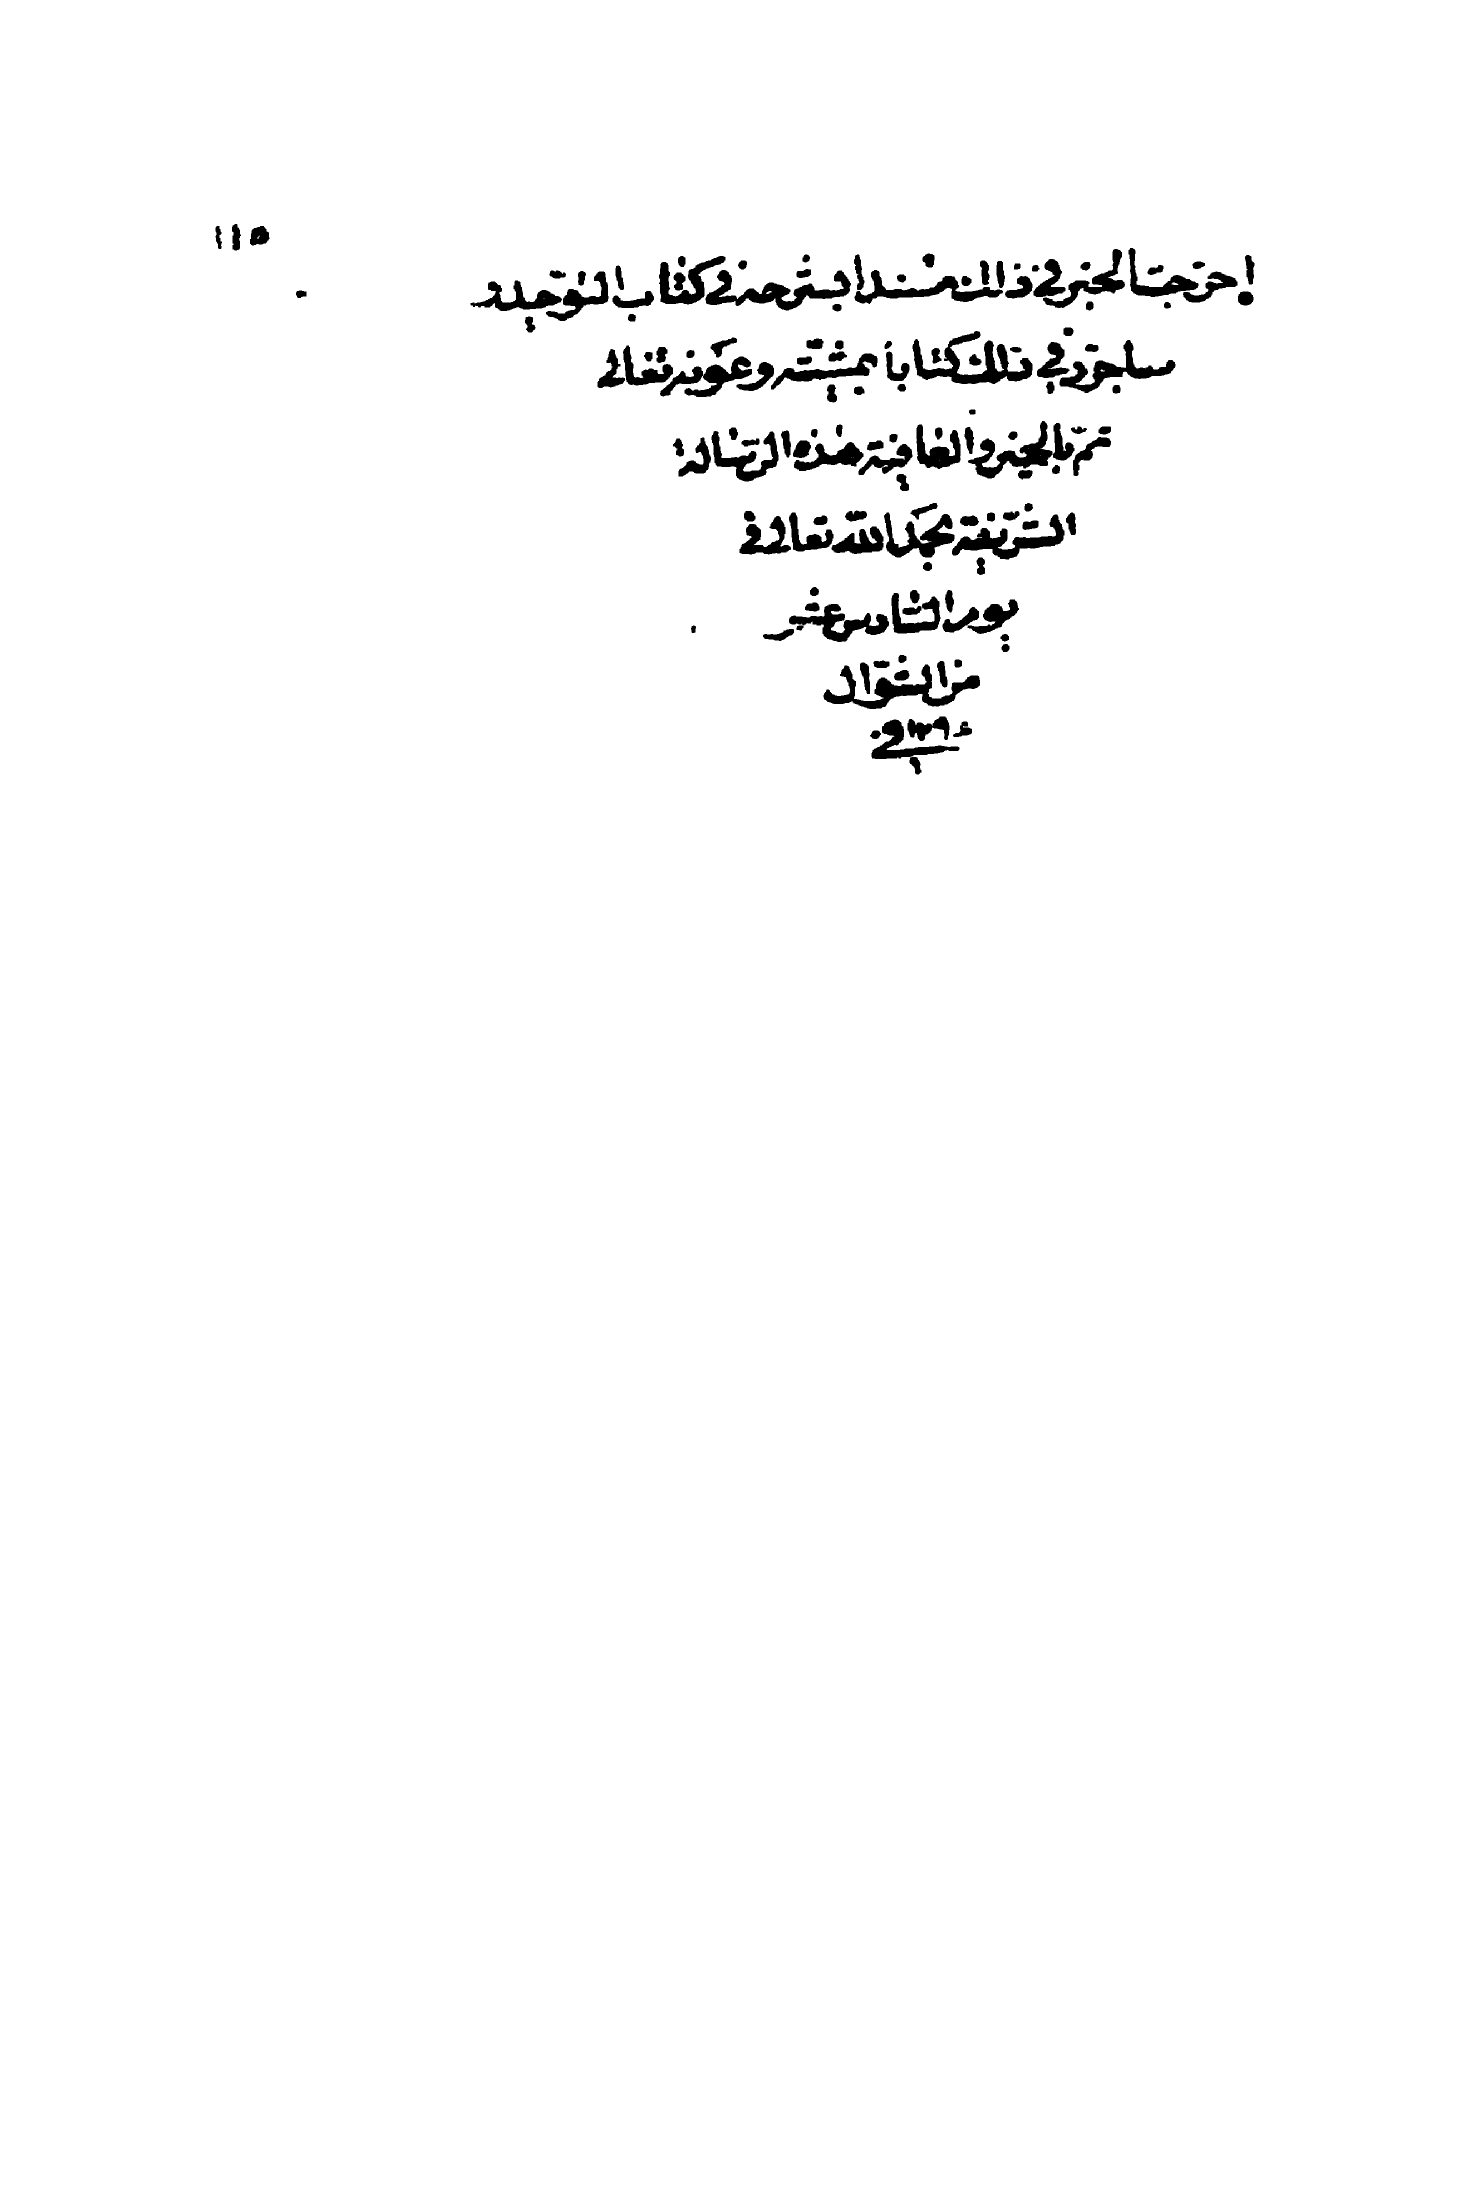 ١١٥
اخرجت الخبر في ذلك مسندا بشرحه في كتاب التوحيد و
ساجرد في ذلك كتابا بمشيته وعونه تعالى
تمّ بالخير والعافية هذه الرسالة
الشريفة بحمد الله تعالى في
يوم السادس عشر
من الشوال